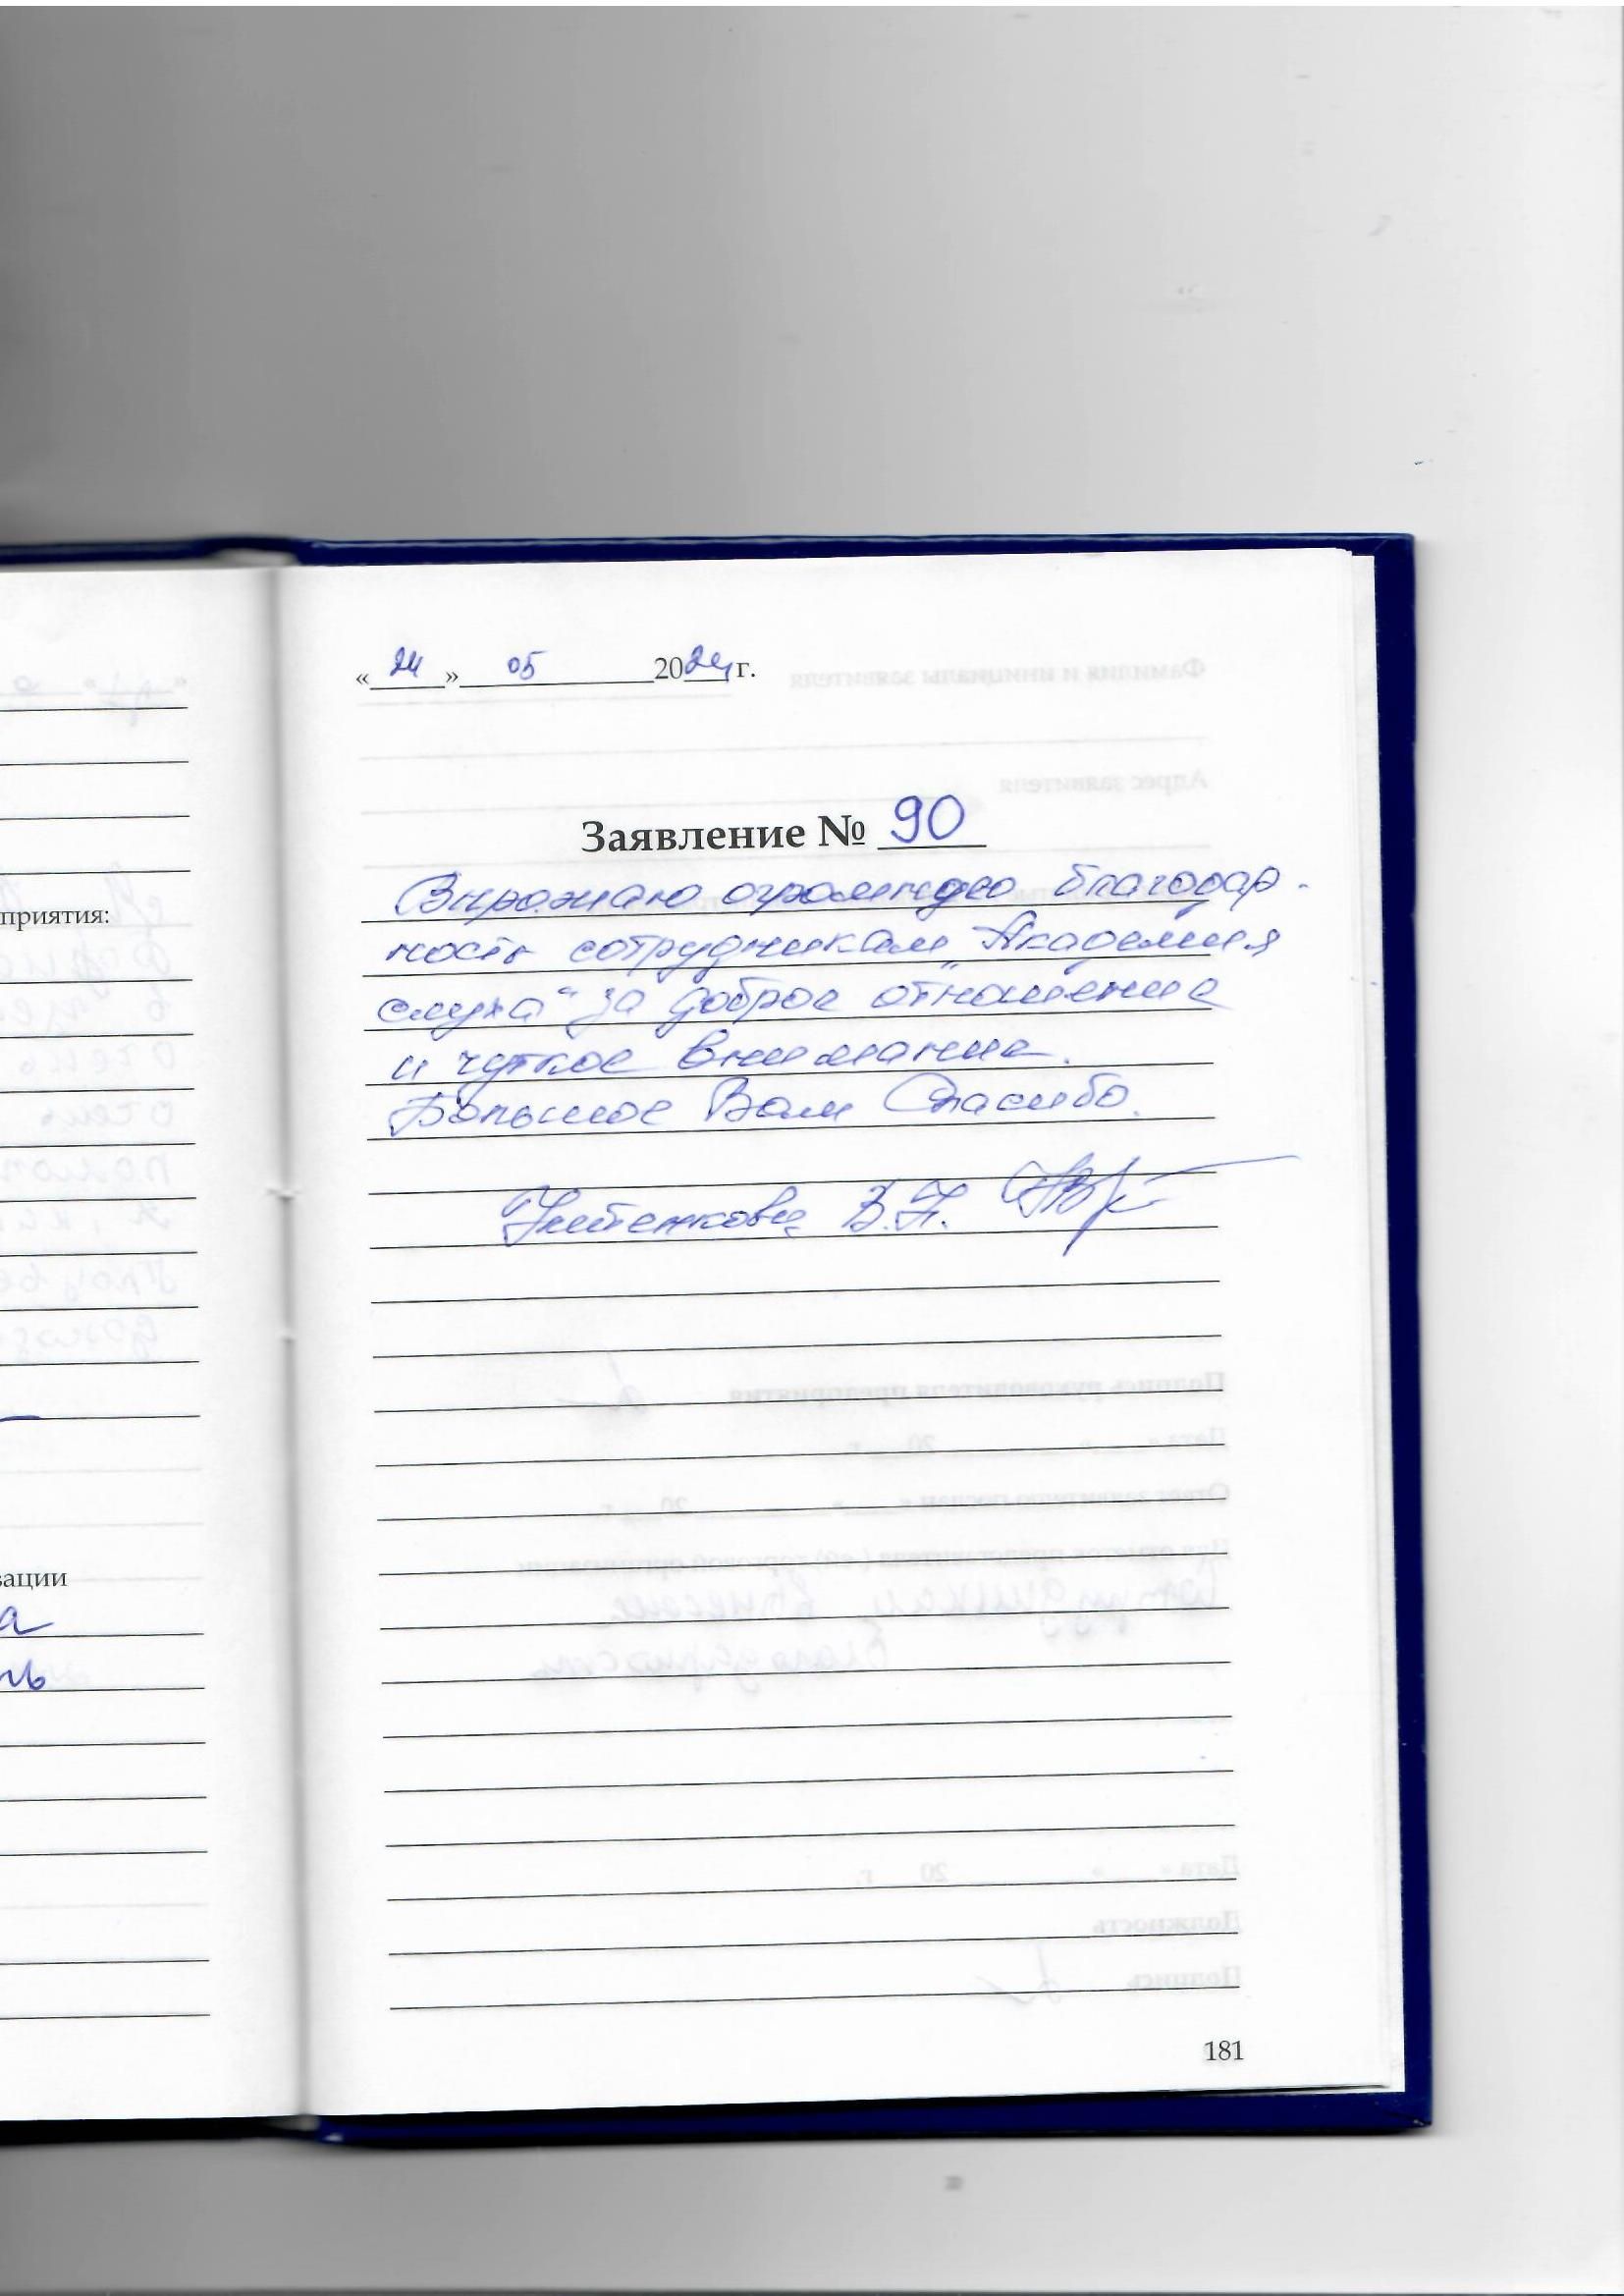 «24» 05 2024 г.
приятия:
Заявление № 90
Выражаю огромную благодар-
ность сотрудникам „Академия
слуха“ за доброе отношение
и чуткое внимание.
Большое Вам Спасибо.
В.Н.
зации
а
нь
181